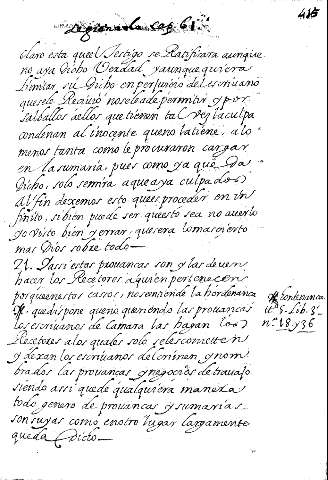 415
Legionario Cap. 61.
claro esta que el testigo se Ratificara aunque
no aya Dicho Verdad, y aunque quiera
limitar su Dicho en perjuicio del escriuano
que selo Reciuio no sele ade permitir, y por
saluallos aellos que tienen tal vez la culpa
condenan al inocente que no la tiene, a lo
menos tanta como le procuraron cargar
en la sumaria, pues como ya queda
Dicho, solo se mira a que aya culpados
Al fin dexemos esto que es proceder en in
finito, si bien puede ser que esto sea no auerlo
yo visto bien y errar, que sera lo mas cierto
mas Dios sobre todo—
21. Y assi estas prouanças son y las deuen
hacer los Recetores a quien pertenecen
porque en estos casos, no se entiende la hordenança
que dispone que no queriendo las prouanças
los escriuanos de Camara las hagan los
Recetores a los quales solo se les cometten
y dexan los escriuanos del crimen y nom
brados las prouanças y negocios de trauajo
siendo assi que de qualquiera manera
todo genero de prouanças y sumarias
son suyas como en otro lugar largamente
queda Dicho—
hordenanca
tt.º 5. Lib. 3.º
n.º 18. y 36